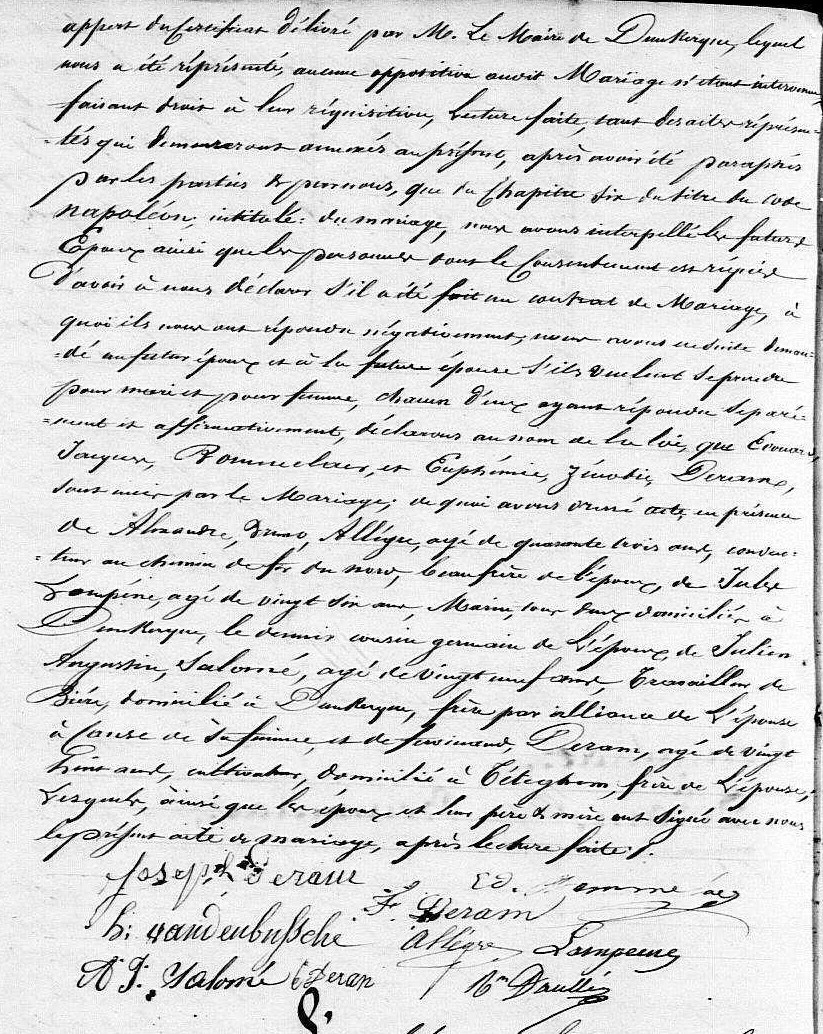 appert du Certificat délivré par M. Le Maire de Dunkerque, lequel
nous a été réprésenté, aucune opposition audit Mariage n'étant intervenue,
faisant droit à leur réquisition, Lecture faite, tant desdites réprésen=
=tés qui demeureront annexés au présent, après avoir été paraphés
par les parties & par nous, que du Chapitre six du titre du code
napoléon, intitulé: du mariage, nous avons interpellé les futurs
Epoux ainsi que les personnes dont le Consentement est réquis
d'avoir à nous déclarer s'il a été fait un contrat de Mariage, à
quoi ils nous ont répondu négativement, nous avons ensuite deman=
=dé au futur époux et à la future épouse s'ils veulent se prendre
pour mari et pour femme, chacun d'eux ayant répondu séparé=
=ment et affirmativement, déclarons au nom de la loi, que Edouard,
Jacques, Rommelaer, et Euphémie, Zénobie, Deram,
sont unis par le Mariage; de quoi avons dressé acte, en présence
de Alexandre, Bruno, Allègre, agé de quarante trois ans, conduc=
=teur au chemin de fer du nord, beau frère de l'époux, de Jules
Lanpéne, agé de vingt six ans, Marin, tous deux domiciliés à
Dunkerque, le dernier cousin germain de L'époux, de Julien
Augustin, Salomé, agé de vingt neuf ans, Travailleur de
Bière, domicilié à Dunkerque, frère par alliance de L'épouse
à Cause de sa femme, et de ferdinand, Deram, agé de vingt
huit ans, cultivateur, domicilié à Téteghem, frère de L'épouse;
Lesquels, ainsi que les époux et leur père & mère ont Signé avec nous
le présent acte de mariage, après lecture faite /.
Joseph Deram
Ed. Rommelaer
F. Deram
h: vandenbussche
Allègre
Lampeene
A J. Salomé
E Deram
Vm Daullé